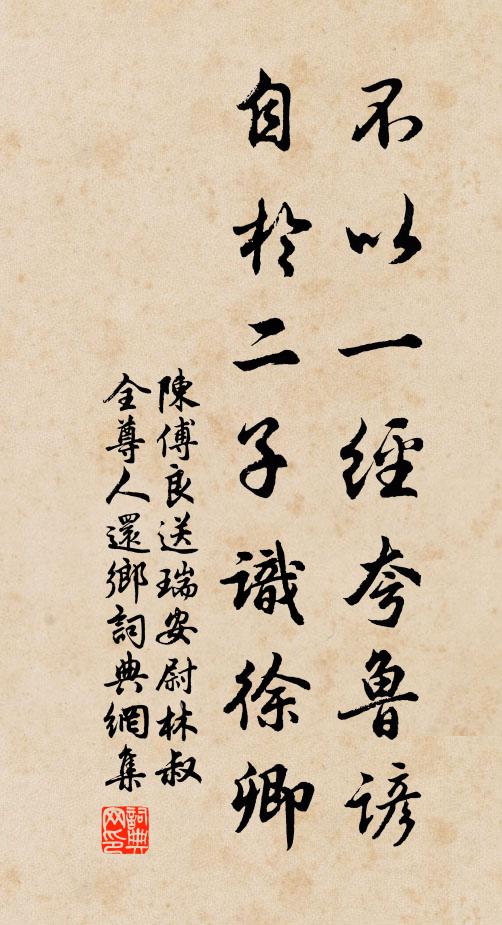 不以一經夸魯諺
自於二子識徐卿
陳傅良送瑞安尉林叔
全尊人還鄉詞典網集
詞典网印